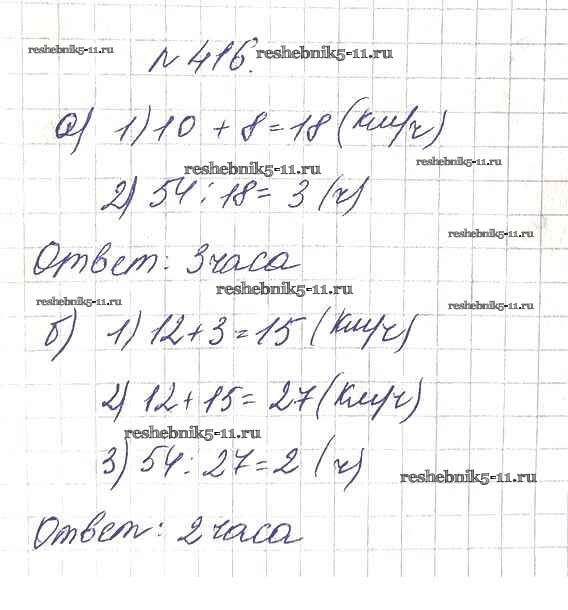 № 416. reshebnik5-11.ru
reshebnik5-11.ru
а) 1) 10 + 8 = 18 (км/ч)
reshebnik5-11.ru reshebnik5-11.ru
2) 54 : 18 = 3 (ч)
reshebnik5-11.ru
Ответ: 3 часа
reshebnik5-11.ru
reshebnik5-11.ru reshebnik5-11.ru
б) 1) 12 + 3 = 15 (км/ч)
2) 12 + 15 = 27 (км/ч)
reshebnik5-11.ru
3) 54 : 27 = 2 (ч)
reshebnik5-11.ru
Ответ: 2 часа